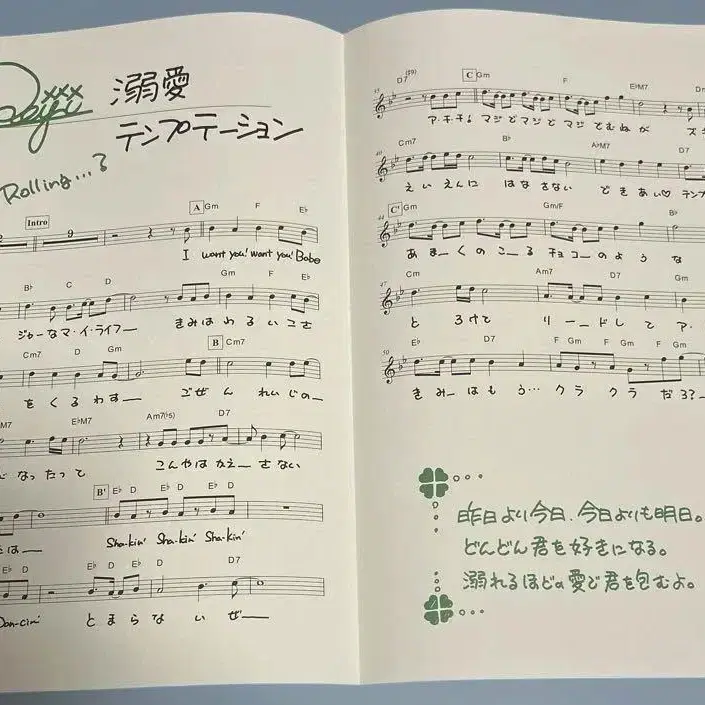 溺愛
テンプテーション
Rolling...?
Intro
A Gm F E♭
2 9
I want you! want you! Babe
B♭ C D Gm F E♭
ジャーなマ・イ・ライフー きみは わるい こさ
Cm7 D Gm B Cm7
をくるわすー ごぜん れいじのー
M7 E♭M7 Am7(♭5) D7
なったって こんやは かえーさない
B' E♭ D E♭ D E♭ D
はー Sha-kin' Sha-kin' Sha-kin'
E♭ D E♭ D E♭ D D7
Dan-cin' とまらないぜー
35 D7(♭9) C Gm F E♭M7
アチチ! マジでマジでマジでむねが
40 Cm7 B♭ A♭M7 D7
えいえんに はなさない できあい♡テンプ
44 C' Gm Gm/F B♭
あまーくのこーる チョコーのような
47 Cm Am7 D7 Gm
とろけて リーードして ア・
50 E♭ D7 Gm F Gm F Gm
きみーはもう…クラクラ だろ?ー
昨日より今日、今日よりも明日。
どんどん君を好きになる。
溺れるほどの愛で君を包むよ。